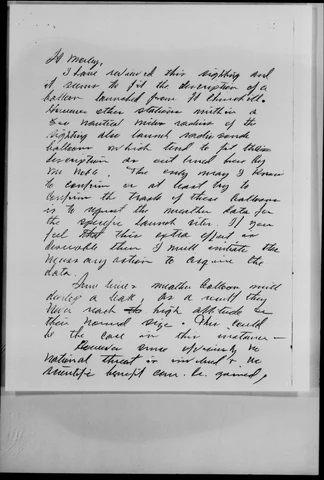 Lt Morley,
I have reviewed this sighting and
it seems to fit the description of a
balloon launched from Ft Churchill.
However other stations within a
nautical miles radius of the
sighting also launch radio sonde
balloons which tend to fit the
description as outlined by
Mr The only way I know
to confirm or at least try to
confirm the track of these balloons
is to request the weather data for
the specific launch sites. If you
feel that this extra effort is
desirable then I will initiate the
necessary action to acquire the
data.
Some times weather balloon will
develop a leak, as a result they
never reach high altitude or
their normal size. This could
be the case in this instance —
However since obviously no
national threat is involved & no
scientific benefit can be gained,